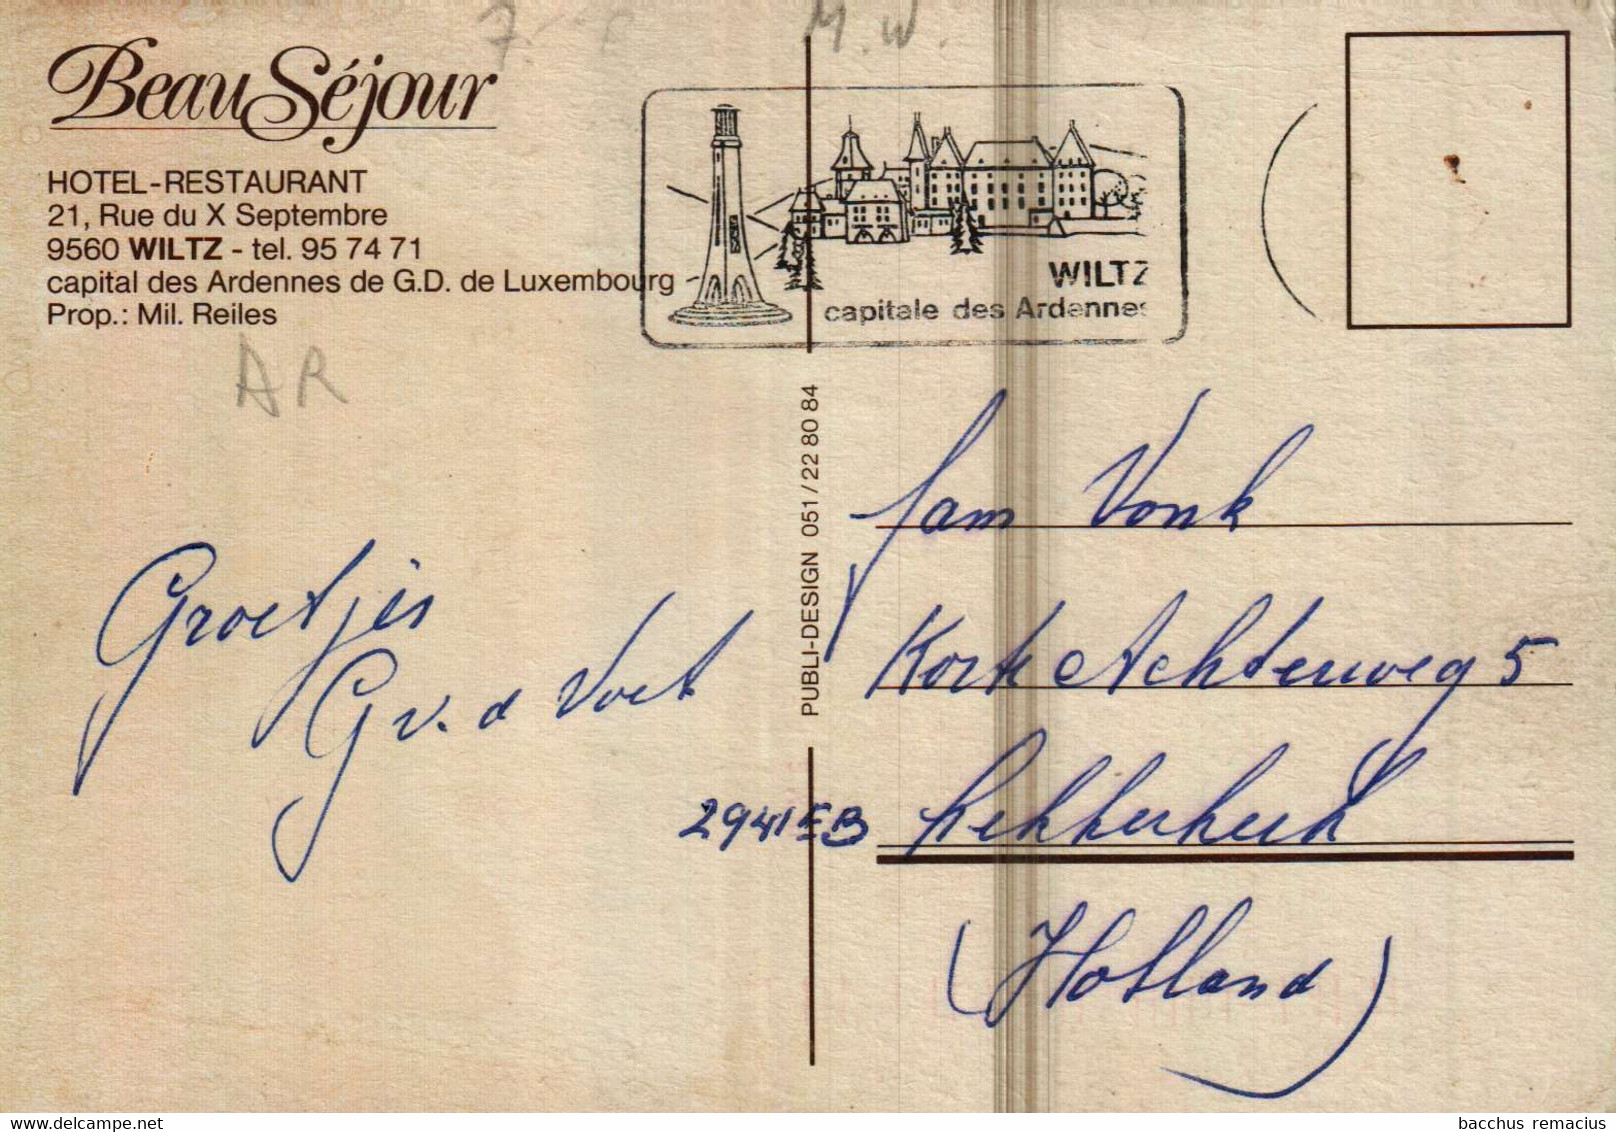 M.W.
Beau Séjour
HOTEL-RESTAURANT
21, Rue du X Septembre
9560 WILTZ - tel. 95 74 71
capital des Ardennes de G.D. de Luxembourg
Prop.: Mil. Reiles
AR
WILTZ
capitale des Ardennes
PUBLI-DESIGN 051/22 80 84
Groetjes
G v. d Voet
fam Vonk
Korte Achterweg 5
2941EB Lekkerkerk
(Holland)
bacchus remacius